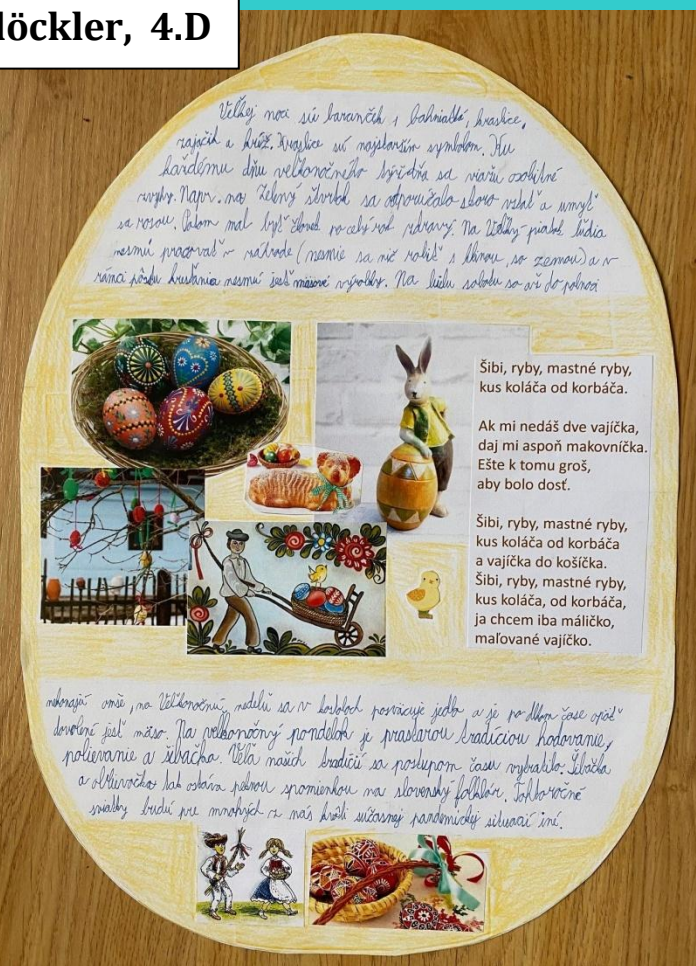 löckler, 4.D
Veľkej noci sú barančík s bahniatkě, kraslice,
zajačik a kríž. Kraslice sú najstarším symbolom. Ku
každému dňu veľkonočného týždňa sa viažu osobitné
zvyky. Napr. na Zelený štvrtok sa odporúčalo skoro vstať a umyť
sa rosou. Potom mal byť človek po celý rok zdravý. Na Veľký piatok ľudia
nesmú pracovať v záhrade (nesmie sa nič robiť s hlinou, so zemou) a v
rámci pôstu kresťania nesmú jesť mäsové výrobky. Na bielu sobotu sa až do polnoci
Šibi, ryby, mastné ryby,
kus koláča od korbáča.
Ak mi nedáš dve vajíčka,
daj mi aspoň makovníčka.
Ešte k tomu groš,
aby bolo dosť.
Šibi, ryby, mastné ryby,
kus koláča od korbáča
a vajíčka do košíčka.
Šibi, ryby, mastné ryby,
kus koláča, od korbáča,
ja chcem iba máličko,
maľované vajíčko.
nekonajú omše, na Veľkonočnú nedeľu sa v kostoloch posväcuje jedlo a je po dlhom čase opäť
dovolené jesť mäso. Na veľkonočný pondelok je prastarou tradíciou hodovanie,
polievanie a šibačka. Veľa našich tradícií sa postupom času vytratilo. Šibačka
a oblievačka tak ostáva peknou spomienkou na slovenský folklór. Tohtoročné
sviatky budú pre mnohých z nás kvôli súčasnej pandemickej situácii iné.